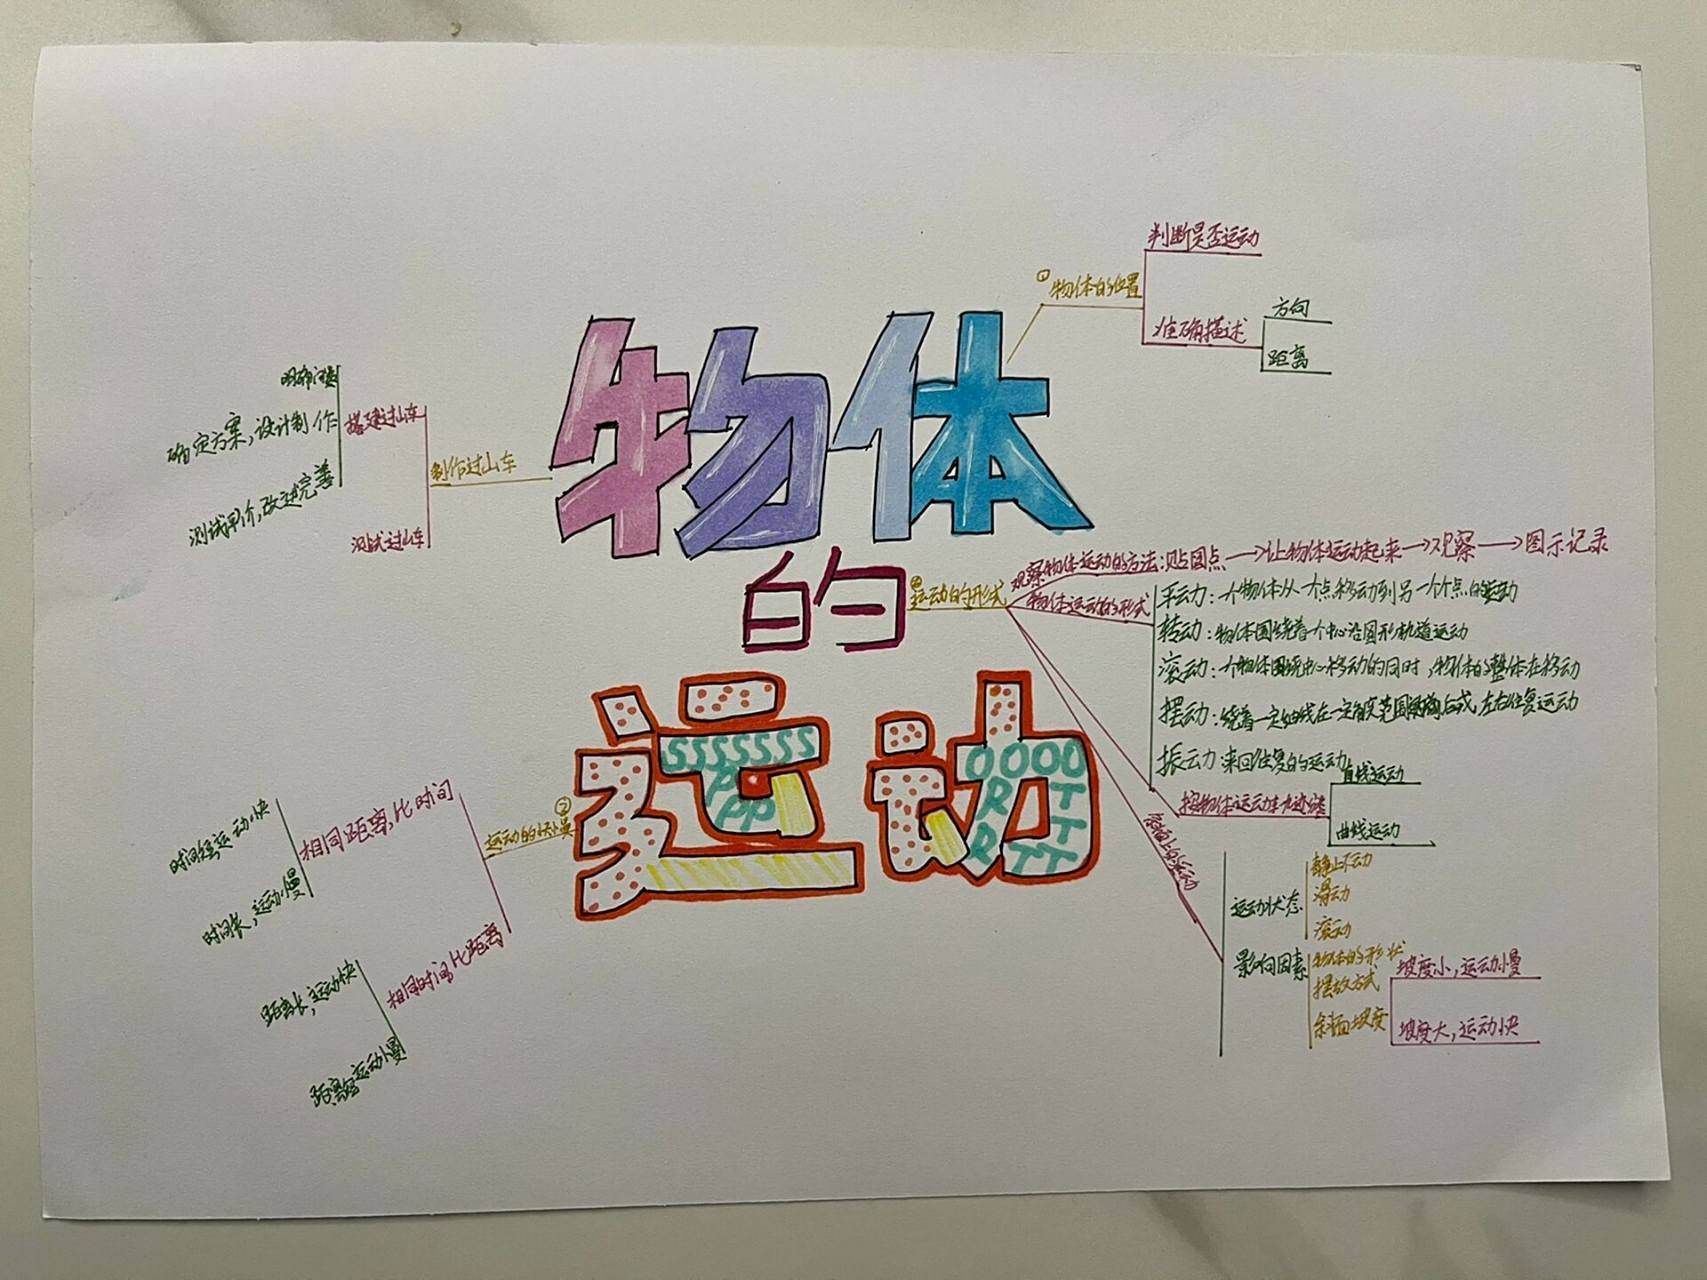 物体
的
运动
①物体的位置
判断是否运动
准确描述
方向
距离
②运动的形式
观察物体运动的方法:贴圆点→让物体运动起来→观察→图示记录
物体运动的形式
平动力:一个物体从一个点移动到另一个个点的运动
转动:物体围绕着一个中心沿圆形轨道运动
滚动:一个物体围绕中心移动的同时,物体的整体在移动
摆动:绕着一定轴线在一定角度范围 左右往复运动
振动 来回往复的运动
按物体运动轨迹
直线运动
曲线运动
斜面上的运动
运动状态
静止不动
滑动
滚动
影响因素
物体的形状
摆放方式
斜面坡度
坡度小,运动慢
坡度大,运动快
③运动的快慢
相同距离,比时间
时间短运动快
时间长,运动慢
相同时间比距离
距离长,运动快
距离短运动慢
制作过山车
搭建过山车
明确问题
确定方案,设计制作
测试评价,改进完善
测试过山车
SSSSSSS
PP
PP
OOOOO
RT
RT
RTT